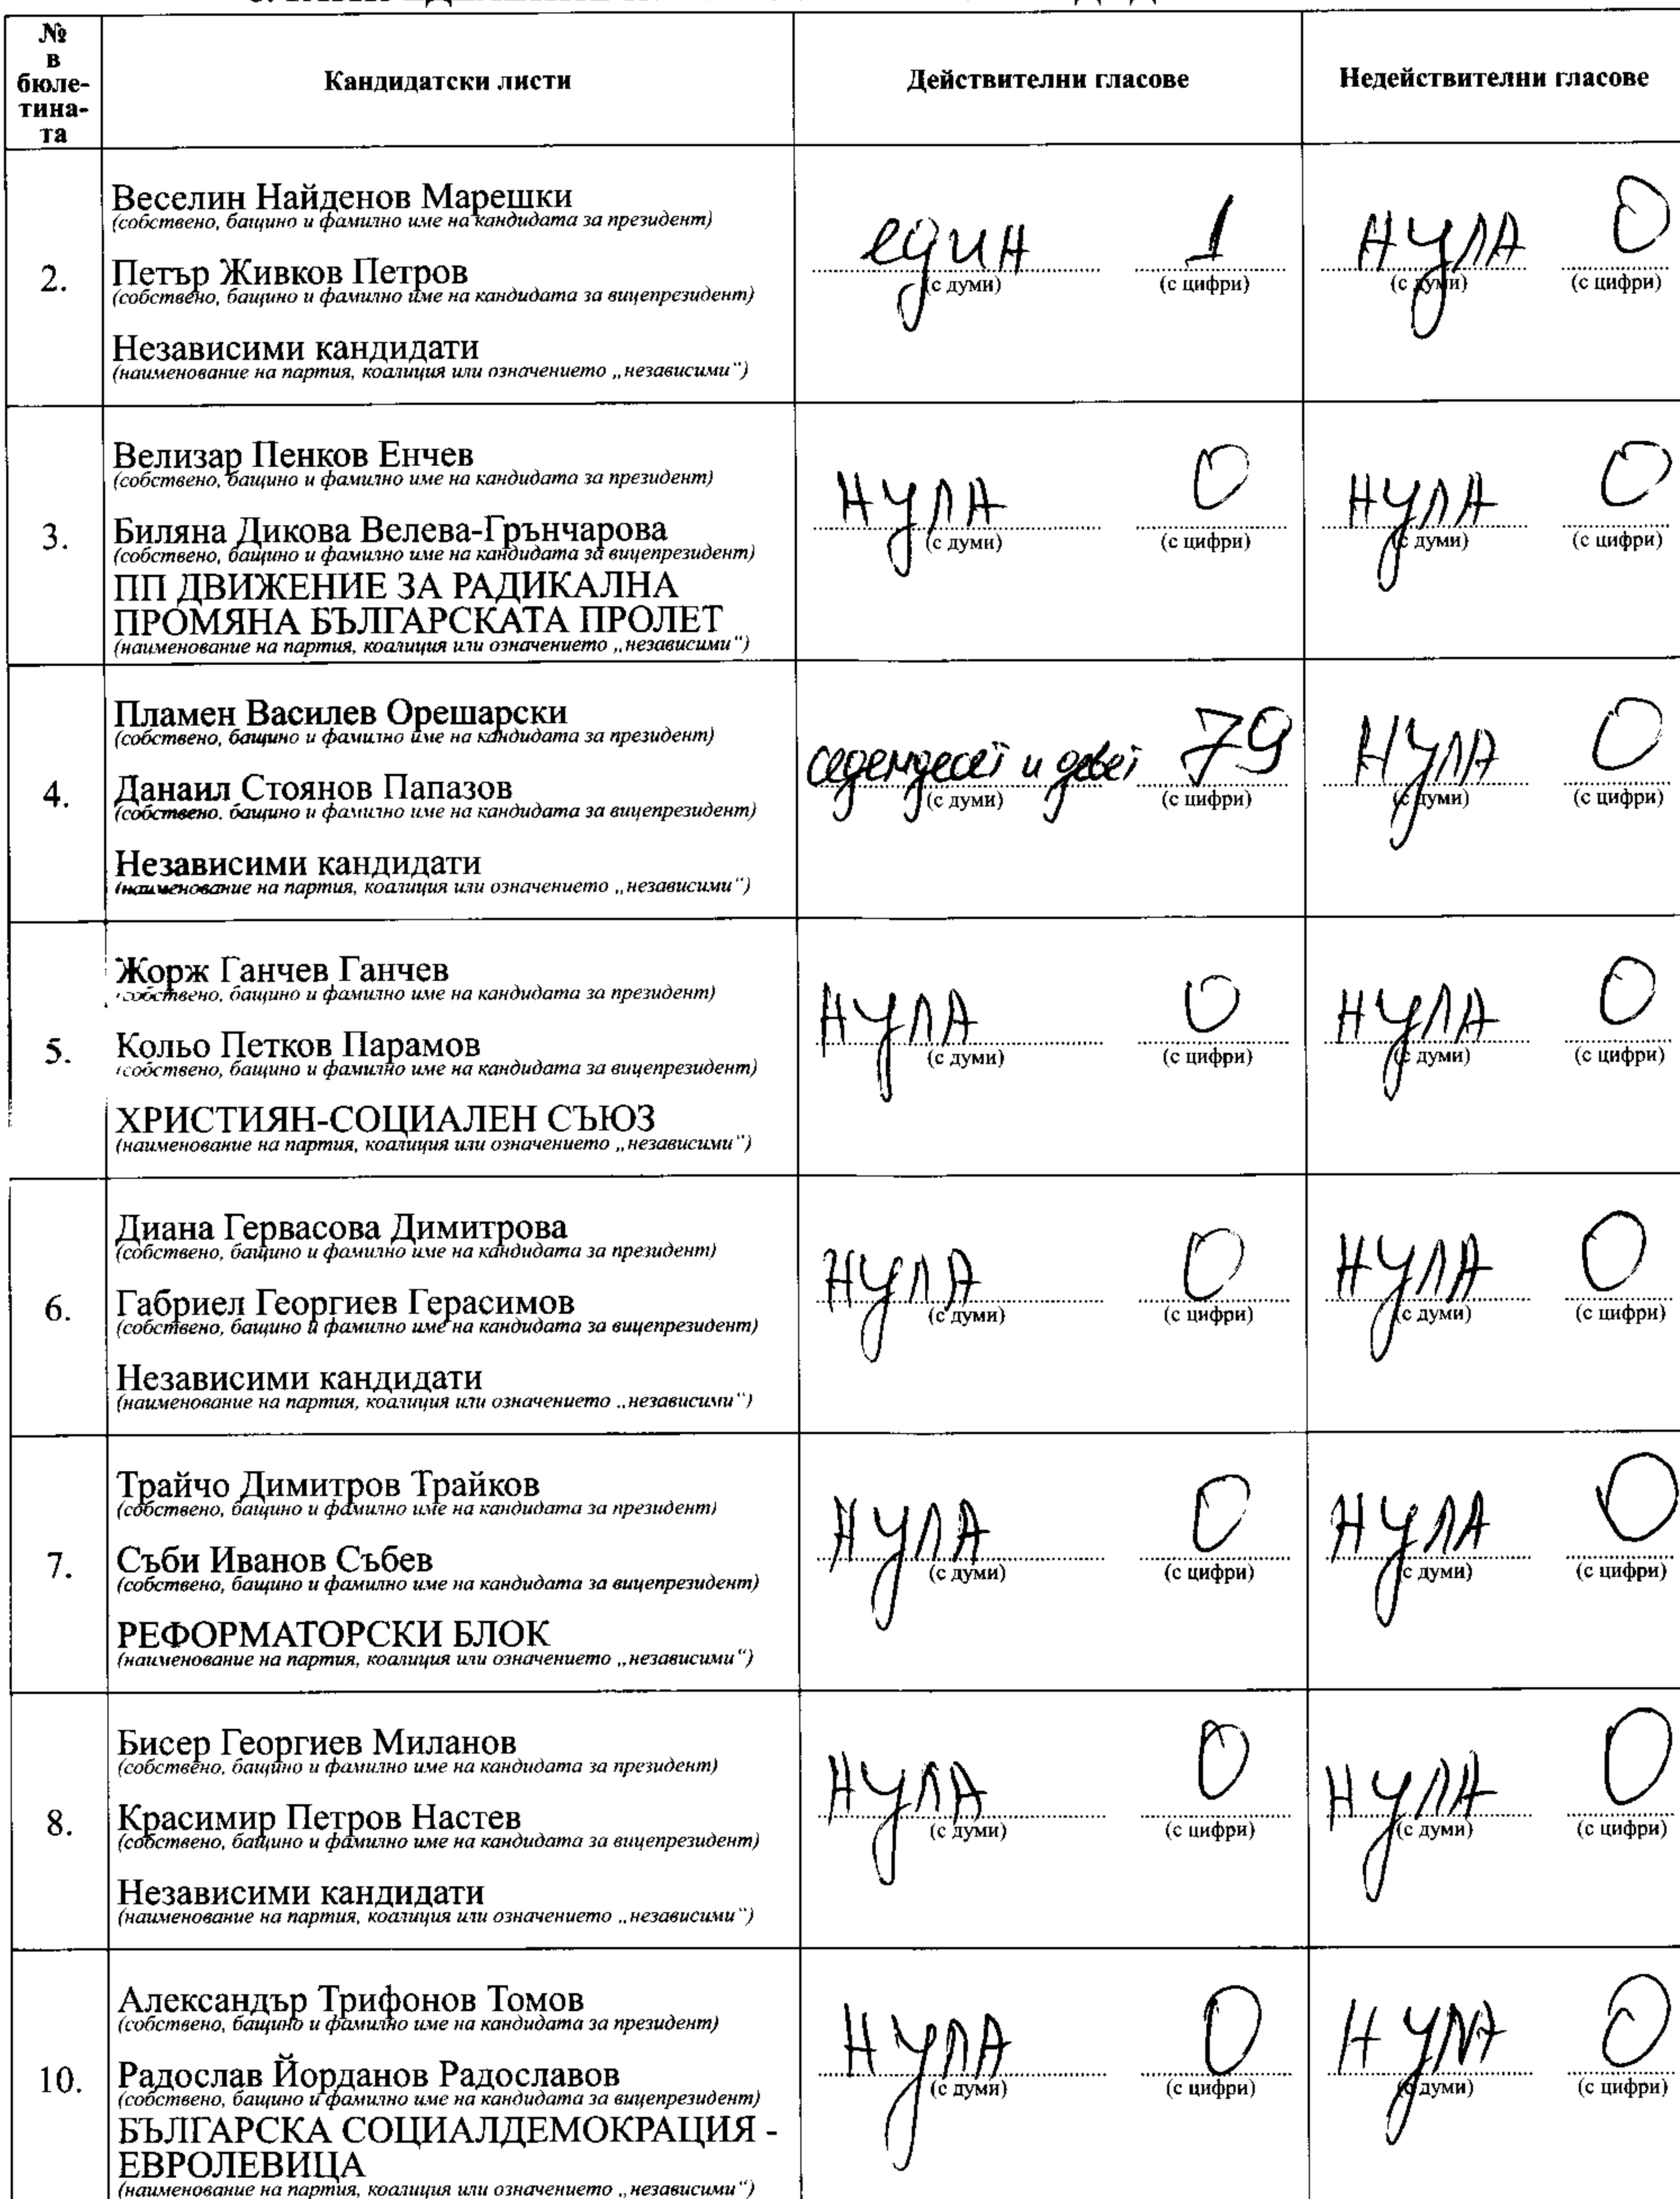 №
в
бюле-
тина-
та
Кандидатски листи
Действителни гласове
Недействителни гласове
2.
Веселин Найденов Марешки
(собствено, бащино и фамилно име на кандидата за президент)
Петър Живков Петров
(собствено, бащино и фамилно име на кандидата за вицепрезидент)
Независими кандидати
(наименование на партия, коалиция или означението „независими“)
един 1 нула 0
(с думи) (с цифри) (с думи) (с цифри)
3.
Велизар Пенков Енчев
(собствено, бащино и фамилно име на кандидата за президент)
Биляна Дикова Велева-Грънчарова
(собствено, бащино и фамилно име на кандидата за вицепрезидент)
ПП ДВИЖЕНИЕ ЗА РАДИКАЛНА
ПРОМЯНА БЪЛГАРСКАТА ПРОЛЕТ
(наименование на партия, коалиция или означението „независими“)
нула 0 нула 0
(с думи) (с цифри) (с думи) (с цифри)
4.
Пламен Василев Орешарски
(собствено, бащино и фамилно име на кандидата за президент)
Данаил Стоянов Папазов
(собствено, бащино и фамилно име на кандидата за вицепрезидент)
Независими кандидати
(наименование на партия, коалиция или означението „независими“)
седемдесет и девет 79 нула 0
(с думи) (с цифри) (с думи) (с цифри)
5.
Жорж Ганчев Ганчев
(собствено, бащино и фамилно име на кандидата за президент)
Кольо Петков Парамов
(собствено, бащино и фамилно име на кандидата за вицепрезидент)
ХРИСТИЯН-СОЦИАЛЕН СЪЮЗ
(наименование на партия, коалиция или означението „независими“)
нула 0 нула 0
(с думи) (с цифри) (с думи) (с цифри)
6.
Диана Гервасова Димитрова
(собствено, бащино и фамилно име на кандидата за президент)
Габриел Георгиев Герасимов
(собствено, бащино и фамилно име на кандидата за вицепрезидент)
Независими кандидати
(наименование на партия, коалиция или означението „независими“)
нула 0 нула 0
(с думи) (с цифри) (с думи) (с цифри)
7.
Трайчо Димитров Трайков
(собствено, бащино и фамилно име на кандидата за президент)
Съби Иванов Събев
(собствено, бащино и фамилно име на кандидата за вицепрезидент)
РЕФОРМАТОРСКИ БЛОК
(наименование на партия, коалиция или означението „независими“)
нула 0 нула 0
(с думи) (с цифри) (с думи) (с цифри)
8.
Бисер Георгиев Миланов
(собствено, бащино и фамилно име на кандидата за президент)
Красимир Петров Настев
(собствено, бащино и фамилно име на кандидата за вицепрезидент)
Независими кандидати
(наименование на партия, коалиция или означението „независими“)
нула 0 нула 0
(с думи) (с цифри) (с думи) (с цифри)
10.
Александър Трифонов Томов
(собствено, бащино и фамилно име на кандидата за президент)
Радослав Йорданов Радославов
(собствено, бащино и фамилно име на кандидата за вицепрезидент)
БЪЛГАРСКА СОЦИАЛДЕМОКРАЦИЯ -
ЕВРОЛЕВИЦА
(наименование на партия, коалиция или означението „независими“)
нула 0 нула 0
(с думи) (с цифри) (с думи) (с цифри)